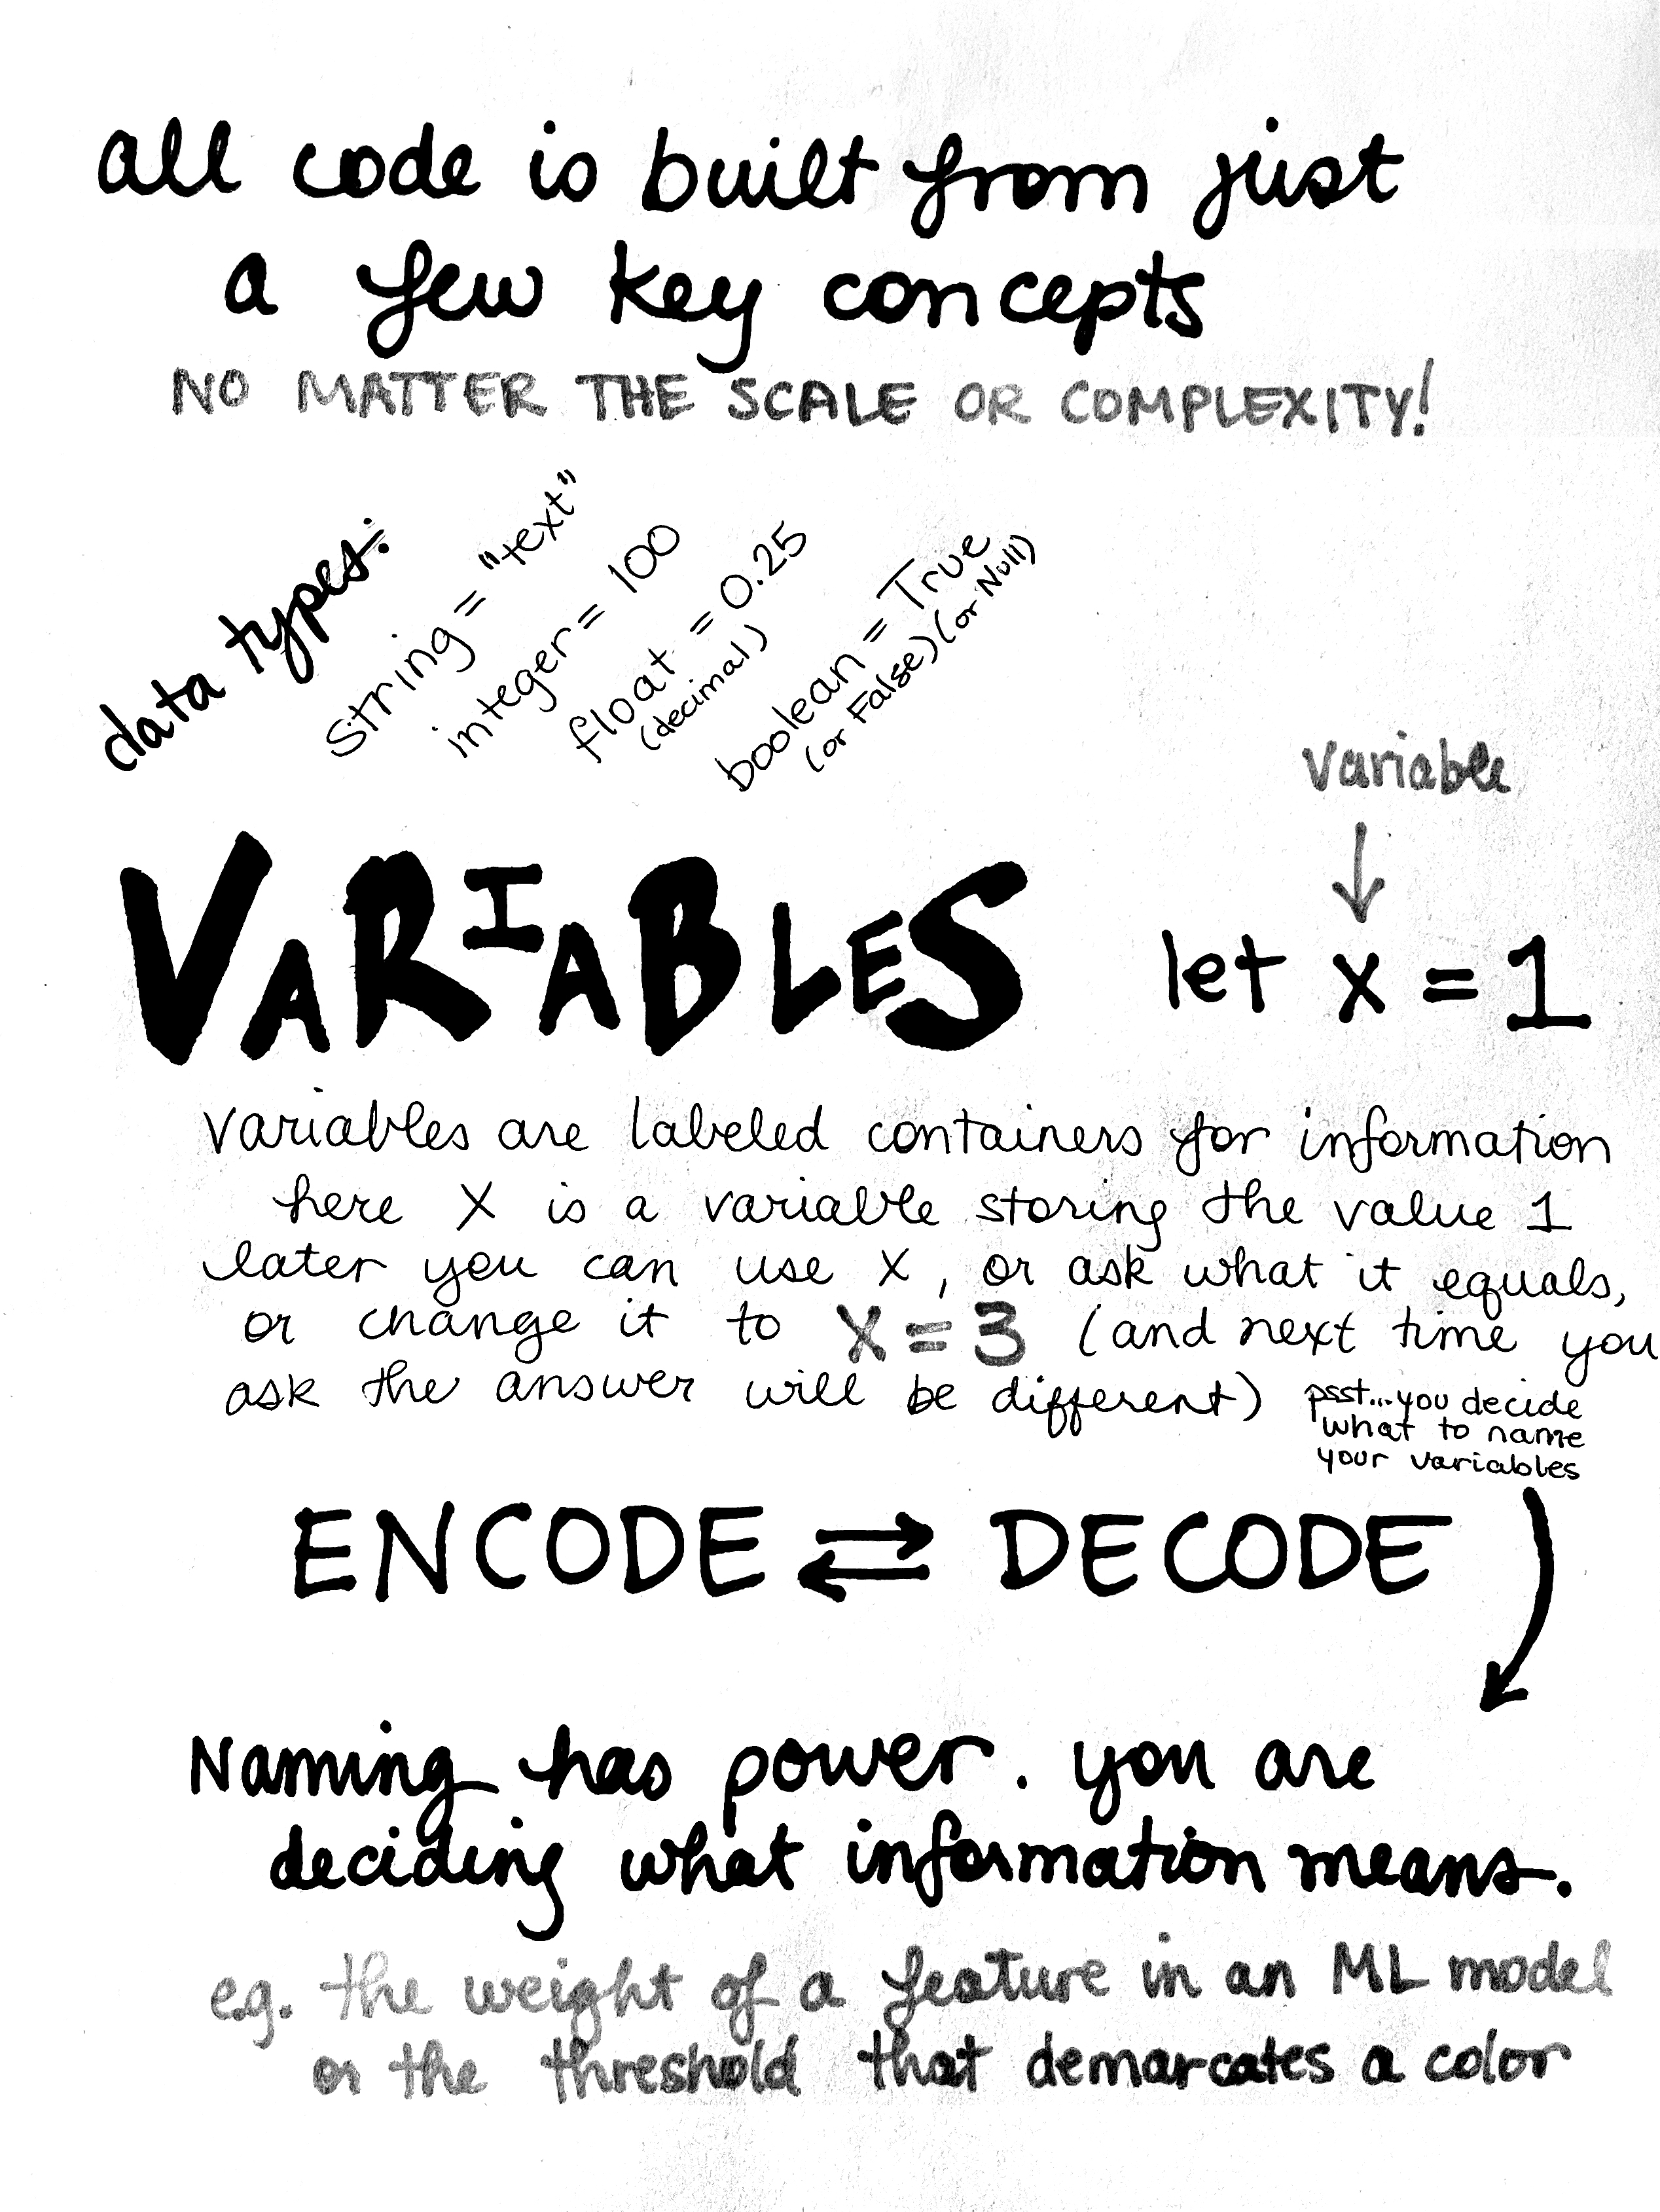 all code is built from just
a few key concepts
NO MATTER THE SCALE OR COMPLEXITY!
data types:
string = "text"
integer = 100
float = 0.25
(decimal)
boolean = True
(or False) (or Null)
variable
VARIABLES
let x = 1
variables are labeled containers for information
here X is a variable storing the value 1
later you can use X, or ask what it equals,
or change it to X = 3 (and next time you
ask the answer will be different)
psst...you decide
what to name
your variables
ENCODE ⇄ DECODE
Naming has power. you are
deciding what information means.
e.g. the weight of a feature in an ML model
or the threshold that demarcates a color